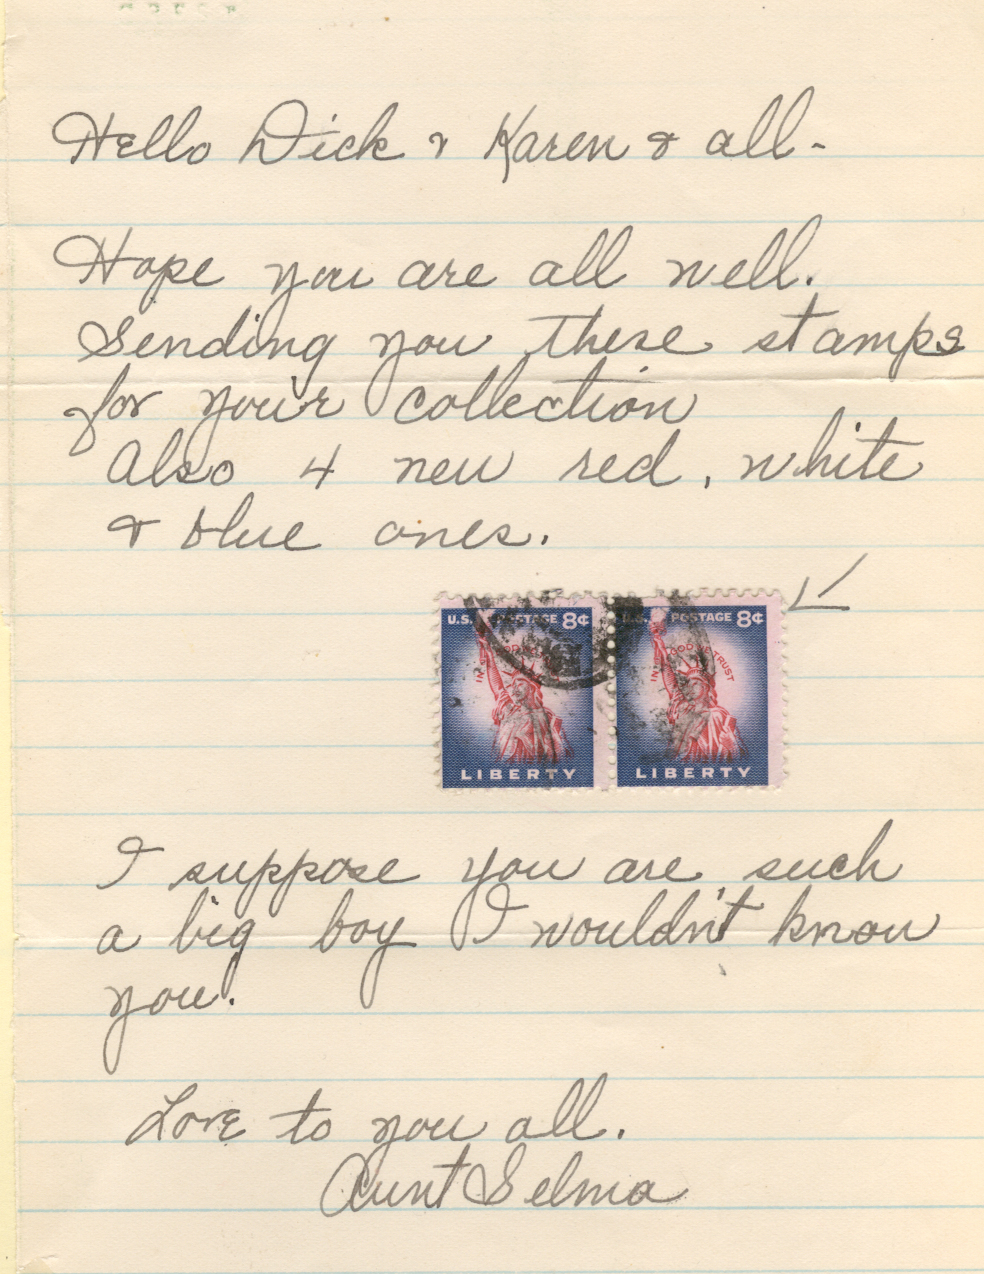 Hello Dick & Karen & all -
Hope you are all well.
Sending you these stamps
for your collection
Also 4 new red, white
& blue ones.
U.S. POSTAGE 8¢ U.S. POSTAGE 8¢
IN GOD WE TRUST
LIBERTY LIBERTY
I suppose you are such
a big boy I wouldn't know
you.
Love to you all.
Aunt Selma